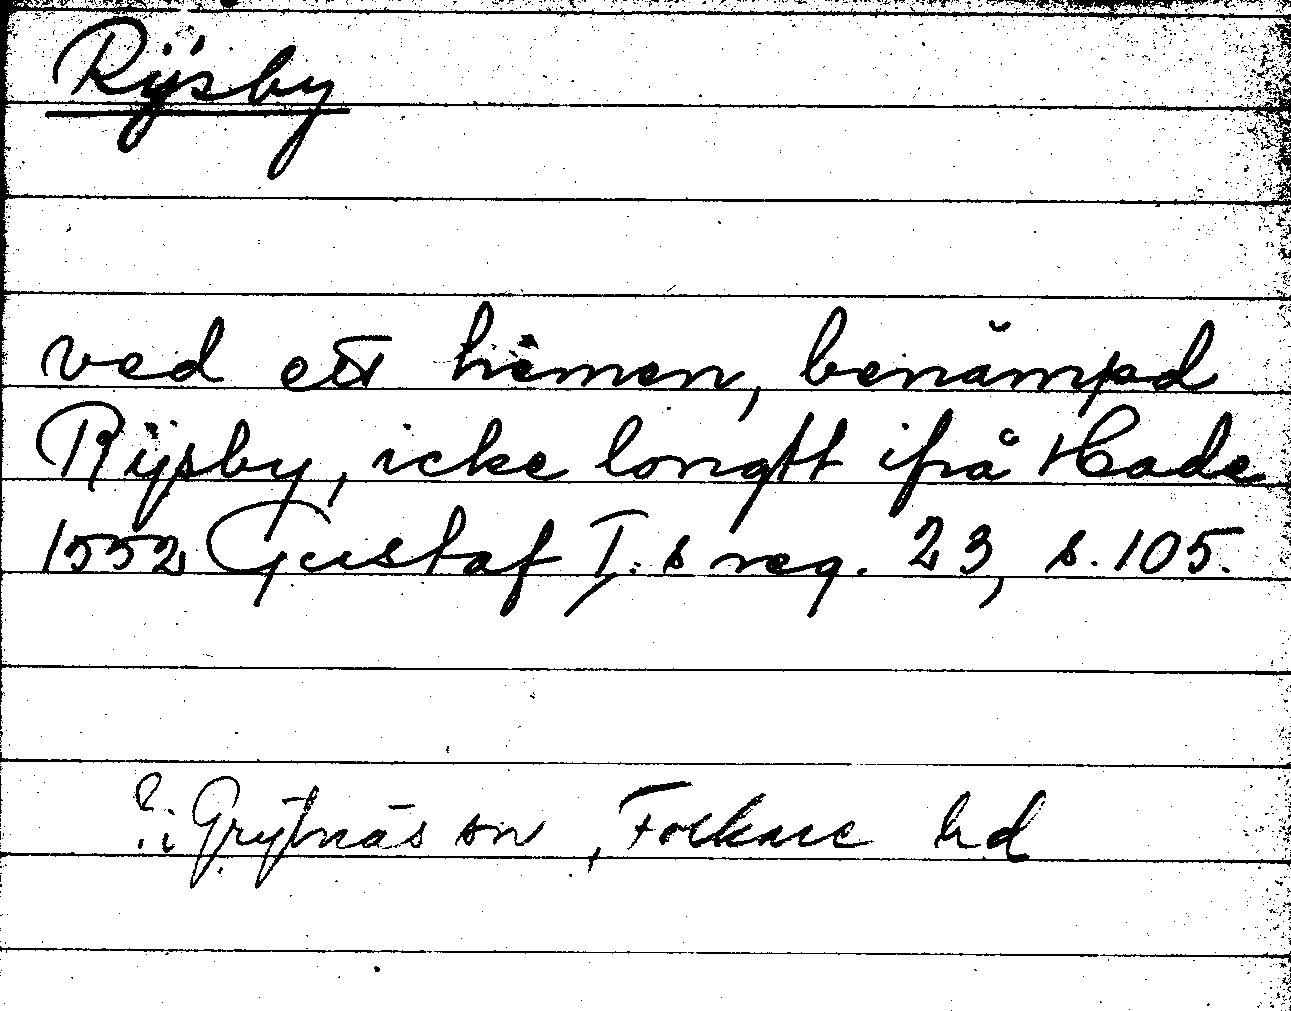 Rÿsby
ved ett hemen, benämpd
Rÿsby, icke longtt ifrå Hade
1552 Gustaf I:s reg. 23, s. 105.
? i Grytnäs sn, Folkare hd